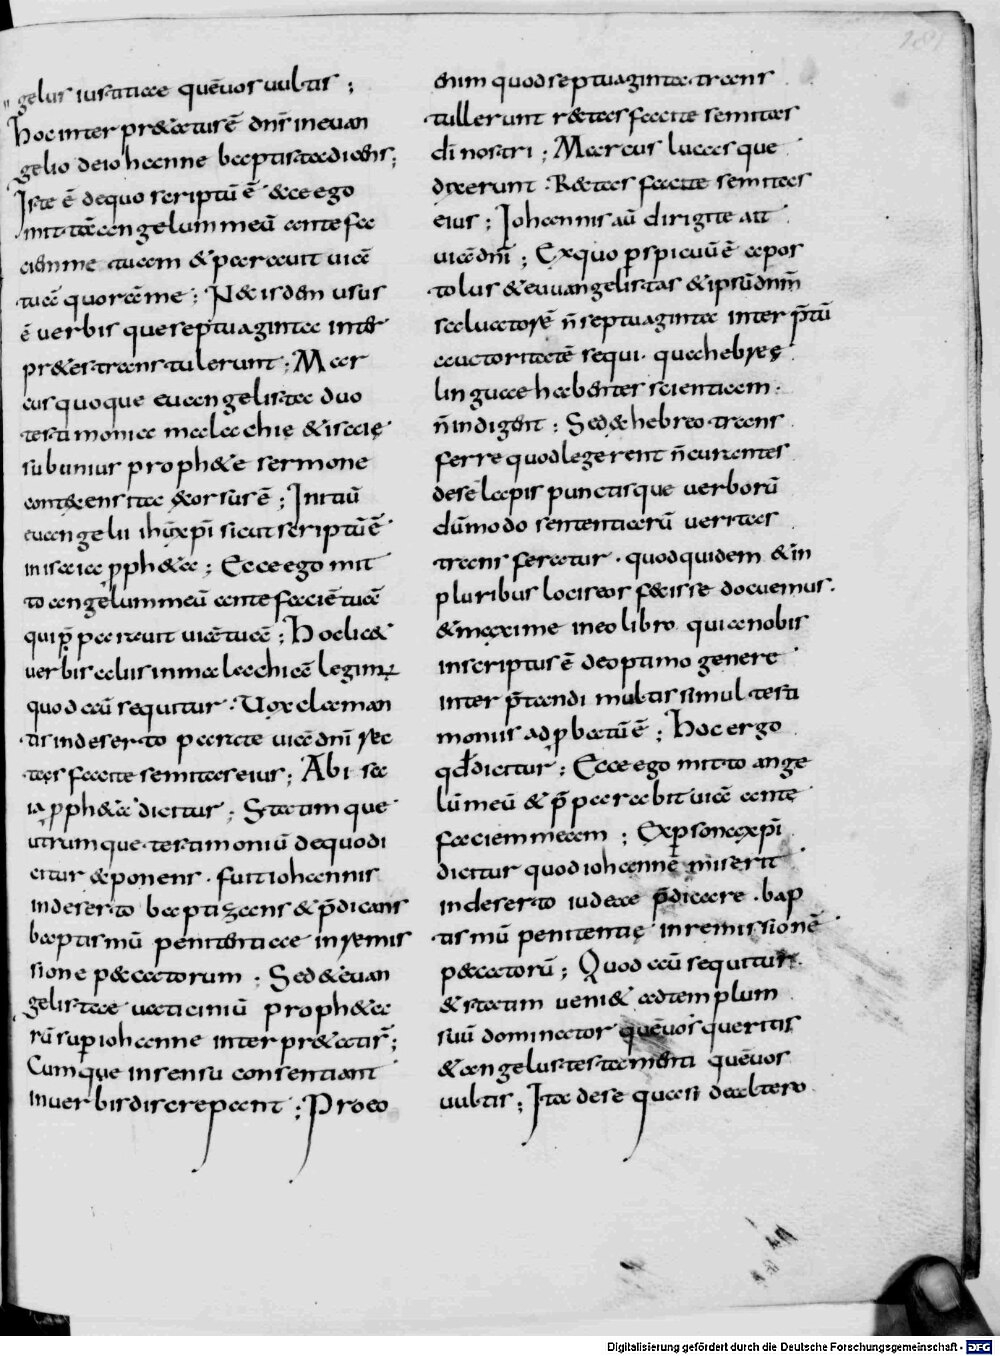 181
gelus iustitiae quē uos uultis ;
Hoc inter prætatus ē dn̄s in euan
gelio de iohanne baptista dicens ;
Iste ē de quo scriptū ē ecce ego
mitto angelum meū ante fa
ciem meam & parauit uiā
tuā quorāme ; Nec isdem usus
ē uerbis que septuaginta inter
pr&es transtulerunt ; Mar
cus quoque euangelista duo
testimonia malachię & isaię
sub unius proph&e sermone
contexens ita exorsus ē ; Initiū
euangelii ihū xp̄i sicut scriptū ē
in isaia proph&a ; Ecce ego mit
to angelum meū ante faciē tuā
qui p̄parauit uiā tuā ; Hoc lic&
uerbis aliis in malachiā legimꝰ
quod autē sequitur . Uox claman
tis in deserto parate uiā dn̄i rec
tas facite semitas eius ; Ab isa
ia proph&a dicitur ; Statim que
utrumque testimoniū de quo di
citur exponens . fuit iohannis
in deserto baptizans & p̄dicans
baptismū penitentiae in remis
sione peccatorum ; Sed & euan
gelistae uaticiniū proph&a
rū sup iohanne interpr&atr̄ ;
Cumque in sensu consentiant
in uerbis discrepant ; Pro eo
enim quod septuaginta trans
tullerunt rectas facite semitas
dī nostri ; Marcus lucasque
dixerunt . Rectas facite semitas
eius ; Iohannis aū dirigite ait
uiā dn̄i ; Ex quo pspicuū ē apos
tolus & euuangelistas & ipsū dn̄m
saluatorē n̄ septuaginta inter p̄tū
auctoritatē sequi . qua hebręę
linguae habentes scientiam .
n̄ indigent ; Sed de hebreo trans
ferre quod legerent n̄ curantes
de se lapis punctisque uerborū
dū modo sententiarū ueritas
transferatur . quod quidem & in
pluribus locis eos fecisse docuimus .
& maxime in eo libro qui a nobis
inscriptus ē de optimo genere
inter p̄tandi multis simul testi
moniis adpbatū ē ; Hoc ergo
qđ dicitur ; Ecce ego mitto ange
lū meū & p̄parabit uiā ante
faciem meam ; Ex psona xp̄i
dicitur quod iohannē miserit
in deserto iudeae p̄dicare . bap
tismū penitentię in remissionē
peccatorū ; Quod autē sequitur .
& statim ueni& ad templum
suū dominator quē uos queritis
& angelus testamenti quē uos
uultis ; Ita de se quasi de altero
Digitalisierung gefördert durch die Deutsche Forschungsgemeinschaft - DFG